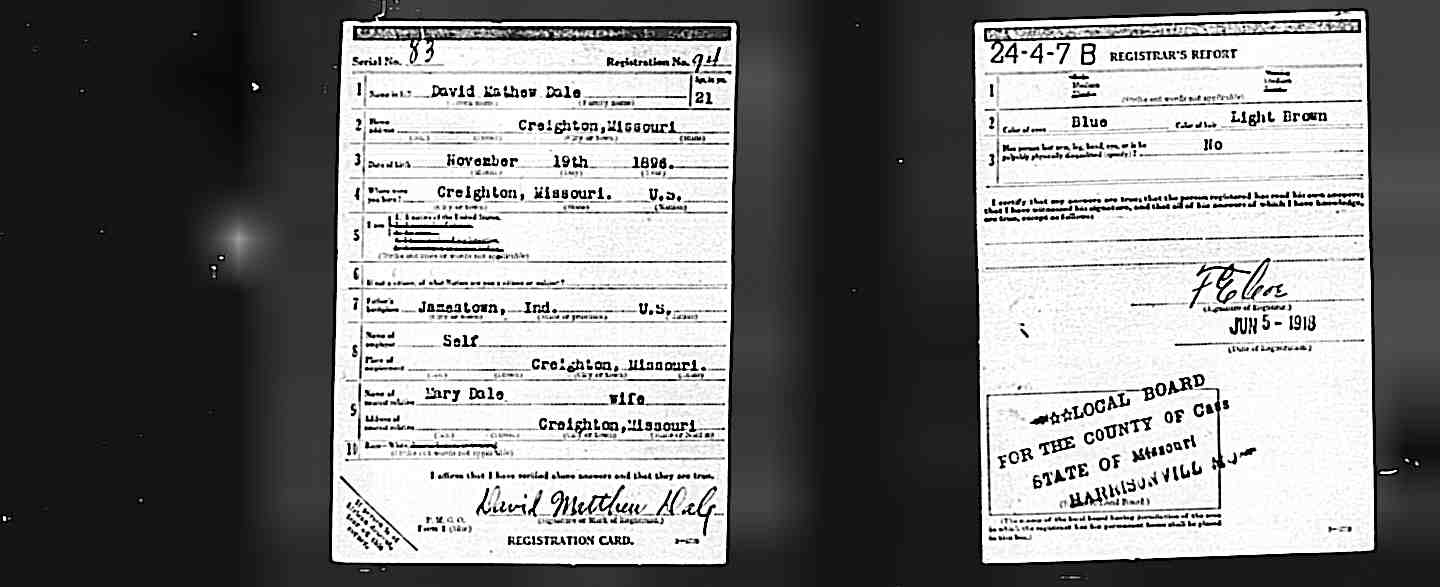 Serial No. 83 Registration No. 94
1 Name in full David Mathew Dale Age, in yrs. 21
(Given name) (Family name)
2 Home address Creighton, Missouri
(City or town) (State)
3 Date of birth November 19th 1896.
(Month) (Day) (Year)
4 Where were you born? Creighton, Missouri. U.S.
(City or town) (State) (Nation)
5 I am 1. A native of the United States.
(Strike out lines or words not applicable)
6 If not a citizen, of what Nation are you a citizen or subject?
7 Father's birthplace Jamestown, Ind. U.S.
(City or town) (State or province) (Nation)
8 Name of employer Self
Place of employment Creighton, Missouri.
(City or town)
9 Name of nearest relative Mary Dale wife
Address of nearest relative Creighton, Missouri
(City or town)
10 Race—White
(Strike out words not applicable)
I affirm that I have verified above answers and that they are true.
David Matthew Dale
(Signature or Mark of Registrant.)
P. M. G. O.
Form 1
REGISTRATION CARD.
24-4-7 B REGISTRAR'S REPORT
1
(Strike out words not applicable)
2 Color of eyes Blue Color of hair Light Brown
3 Has person lost arm, leg, hand, eye, or is he palpably physically disqualified (specify)? No
I certify that my answers are true; that the person registered has read his own answers;
that I have witnessed his signature, and that all of his answers of which I have knowledge,
are true, except as follows:
(Signature of Registrar.)
JUN 5 - 1918
(Date of Registration.)
LOCAL BOARD
FOR THE COUNTY OF Cass
STATE OF Missouri
HARRISONVILL MO
(The stamp of the local board having jurisdiction of the area
in which the registrant has his permanent home shall be placed
in this box.)